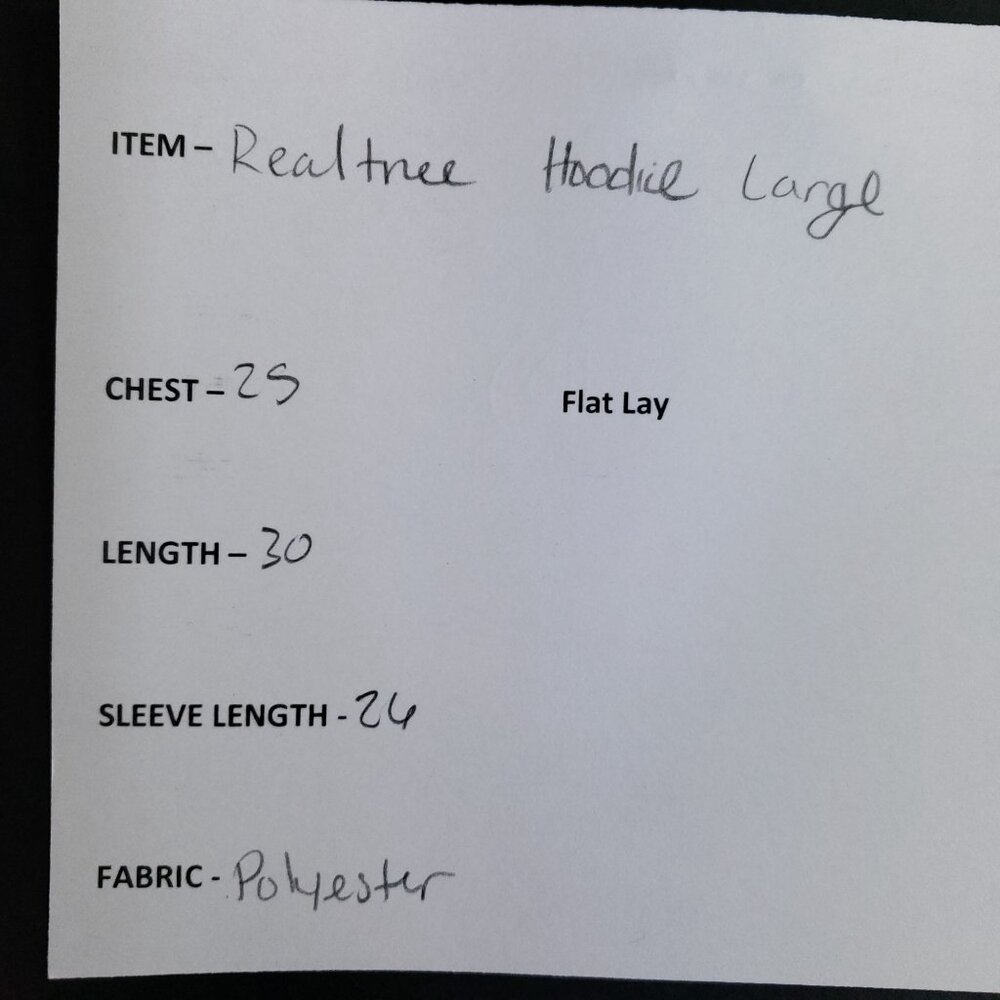 ITEM – Realtree Hoodie Large
CHEST – 25 Flat Lay
LENGTH – 30
SLEEVE LENGTH - 24
FABRIC - Polyester